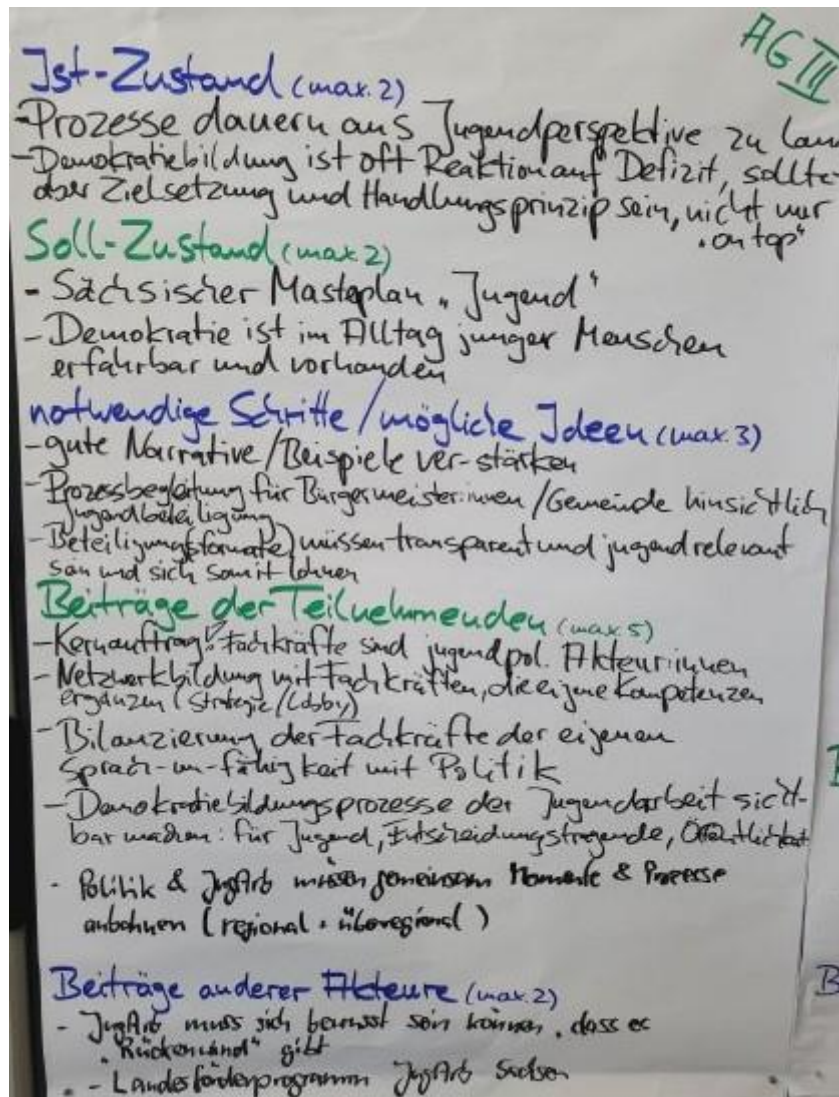 AG III
Ist-Zustand (max. 2)
- Prozesse dauern aus Jugendperspektive zu lan
- Demokratiebildung ist oft Reaktion auf Defizit, sollte
aber Zielsetzung und Handlungsprinzip sein, nicht nur
"on top"
Soll-Zustand (max 2)
- Sächsischer Masterplan "Jugend"
- Demokratie ist im Alltag junger Menschen
erfahrbar und vorhanden
notwendige Schritte / mögliche Ideen (max. 3)
- gute Narrative / Beispiele ver-stärken
- Prozessbegleitung für Bürgermeister:innen / Gemeinde hinsichtlich
Jugendbeteiligung
- Beteiligungs(formate) müssen transparent und jugendrelevant
sein und sich somit lohnen
Beiträge der Teilnehmenden (max. 5)
- Kernauftrag: Fachkräfte sind jugendpol. Akteur:innen
- Netzwerkbildung mit Fachkräften, die eigene Kompetenzen
ergänzen (Strategie/Lobby)
- Bilanzierung der Fachkräfte der eigenen
Sprach-un-fähigkeit mit Politik
- Demokratiebildungsprozesse der Jugendarbeit sicht-
bar machen: für Jugend, Entscheidungstragende, Öffentlichkeit
- Politik & JugArb müssen gemeinsam Momente & Prozesse
anbahnen (regional + überregional)
Beiträge anderer Akteure (max. 2)
- JugArb muss sich bewusst sein können, dass es
"Rückenwind" gibt
- Landesförderprogramm JugArb Sachsen